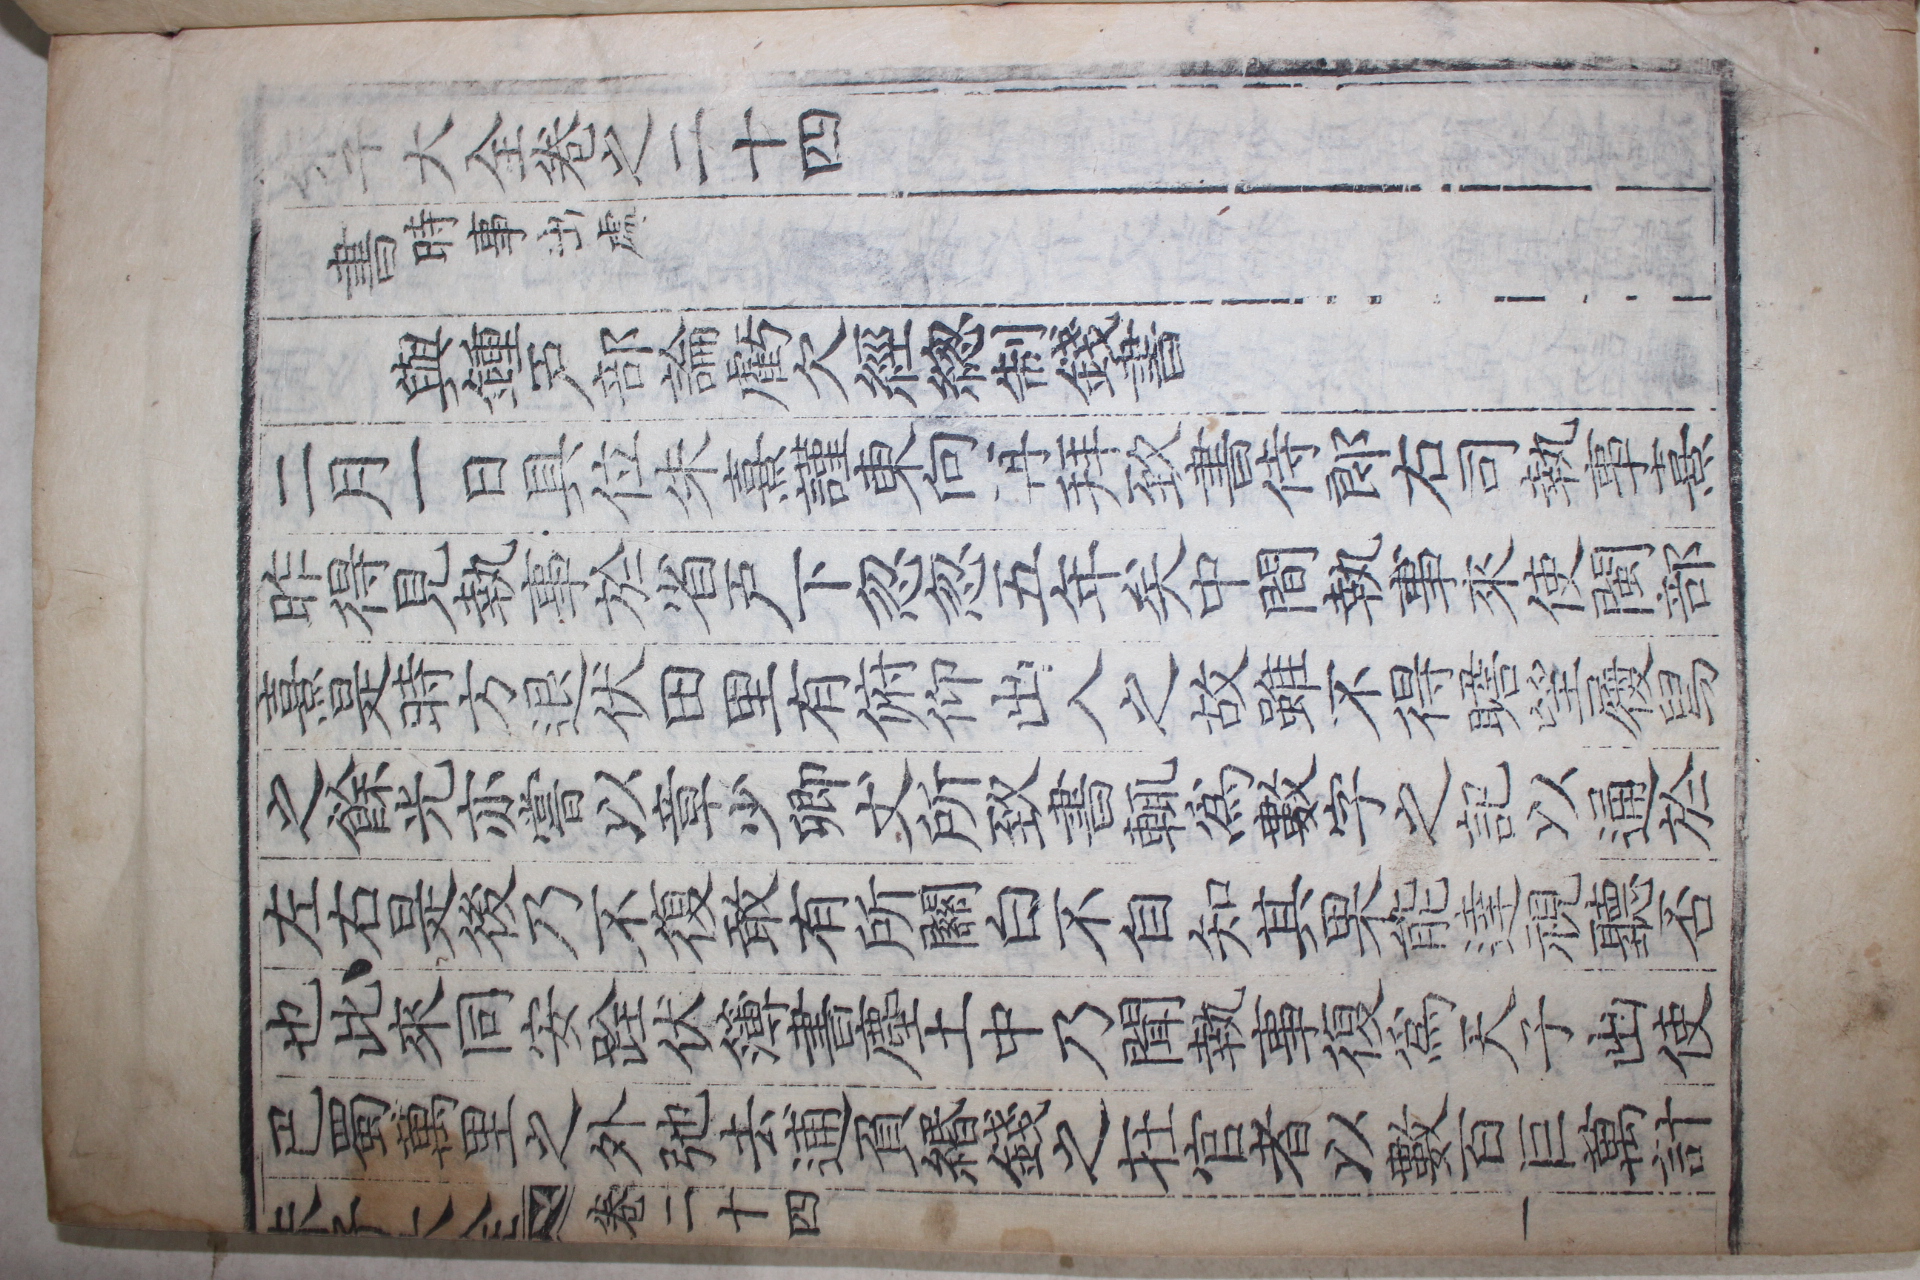 朱子大全卷之二十四
書時事出處
與鍾戶部論虧欠經總制錢書
二月一日具位朱熹謹東向再拜致書侍郎右司執事熹
昨得見執事於省戶下忽忽五年矣中間執事來使閩部
熹是時方退伏田里有俯仰出入之故雖不得瞻望履舃
之餘光亦嘗以章少卿丈所致書輒爲數字之記以通於
左右是後乃不復敢有所關白不自知其果能達視聽否
也比來同安跧伏簿書塵土中乃聞執事復爲天子出使
巴蜀萬里之外弛去逋負緡錢之在官者以數百巨萬計
朱子大全 卷二十四 一